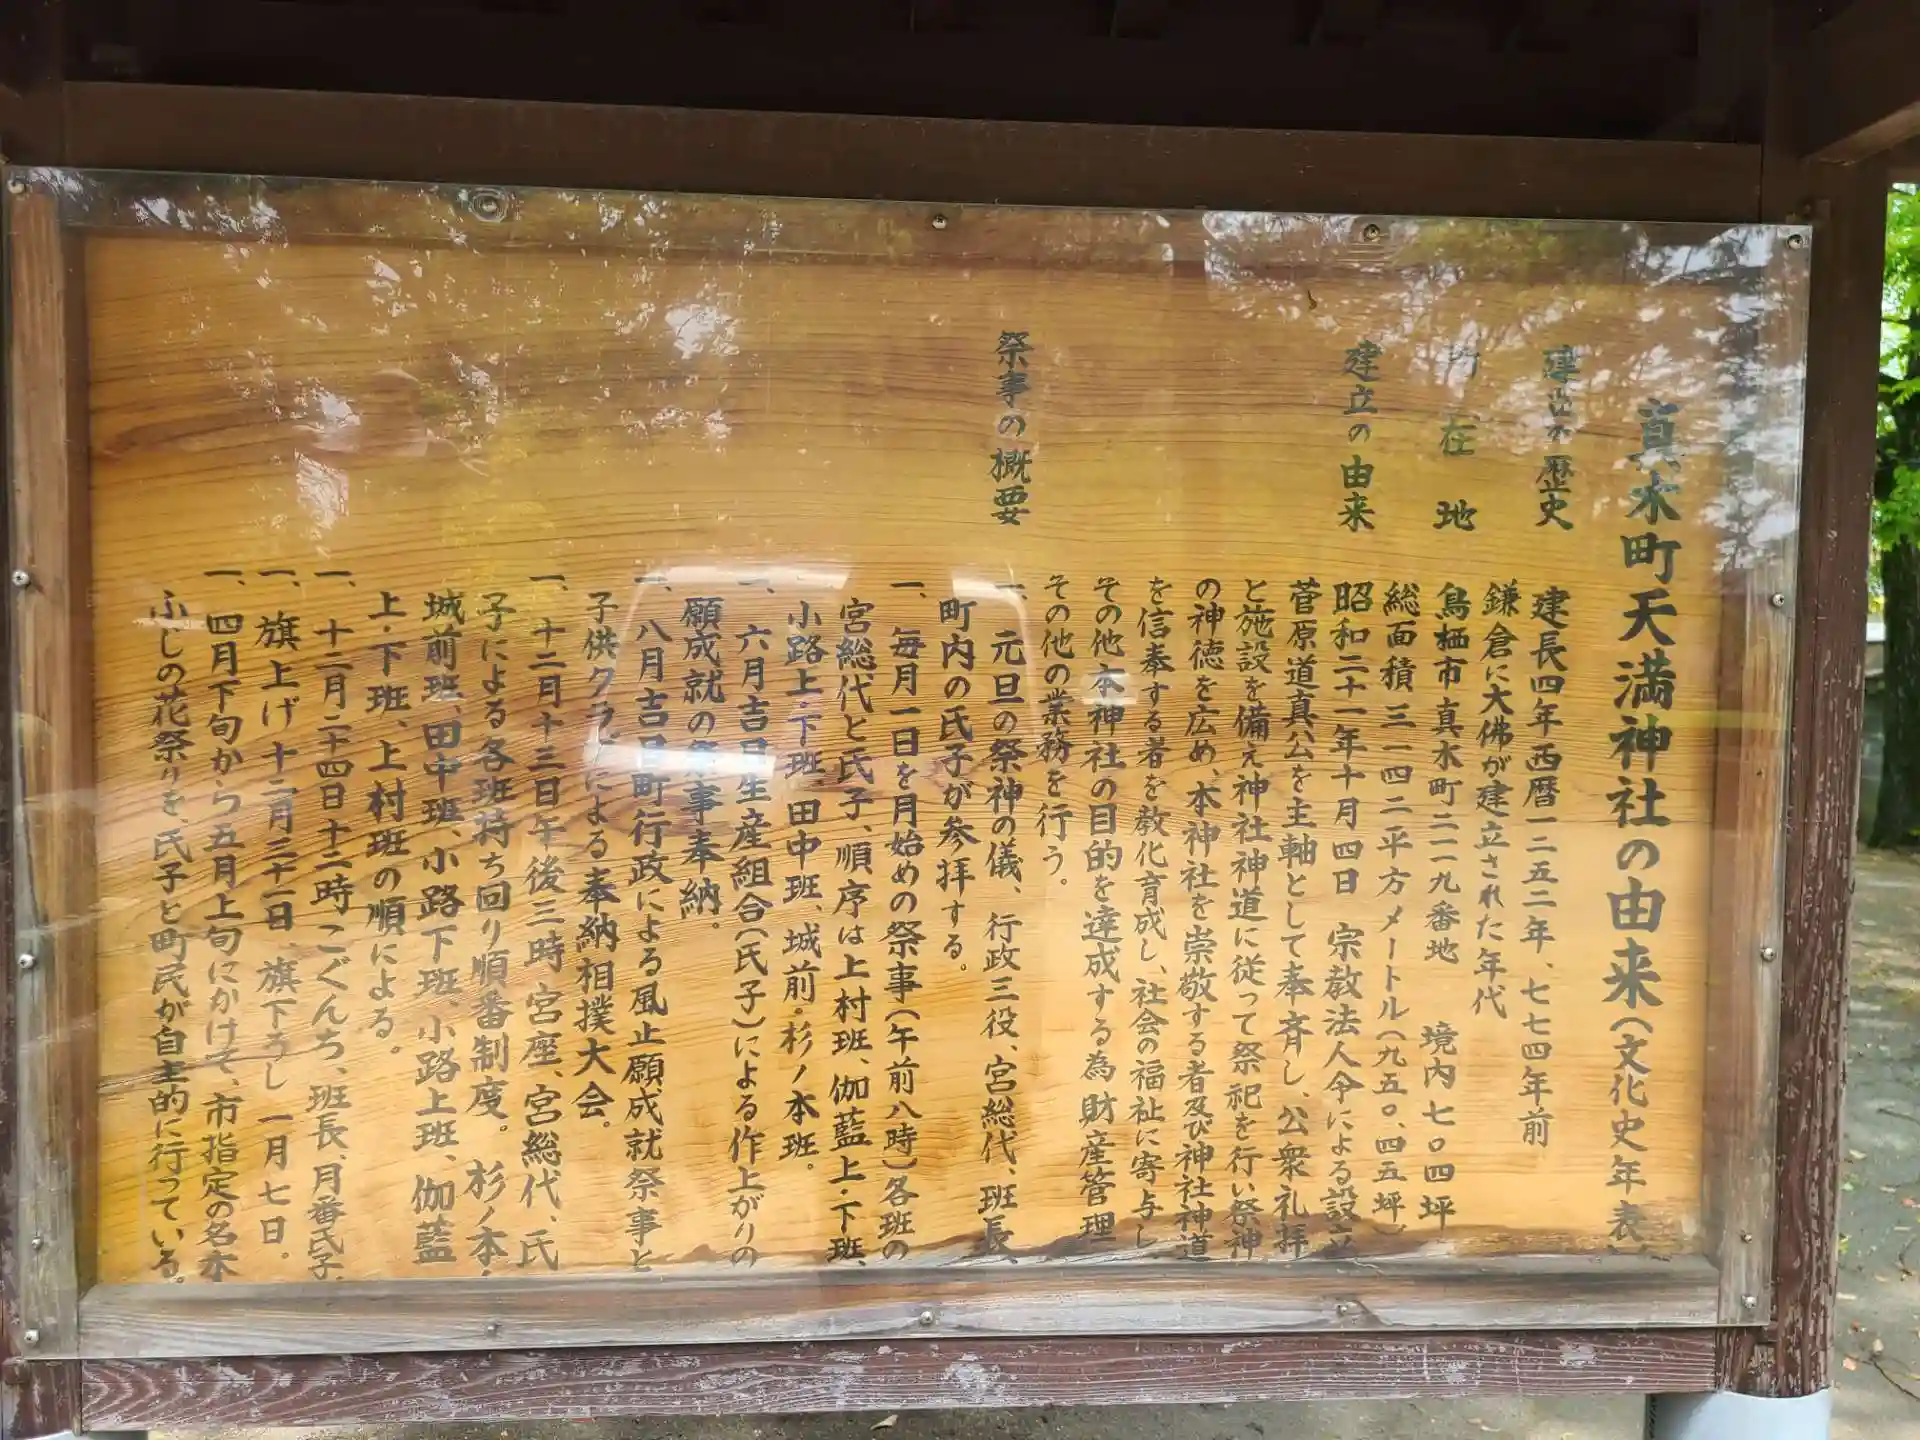 真木町天満神社の由来(文化史年表)
建立の歴史 建長四年西暦一二五二年、七七四年前
鎌倉に大佛が建立された年代
所在地 鳥栖市真木町二一一九番地 境内七〇四坪
総面積三一四二平方メートル(九五〇、四五坪)
建立の由来 昭和二十一年十月四日 宗教法人令による設立
菅原道真公を主軸として奉斉し、公衆礼拝
と施設を備え神社神道に従って祭祀を行い祭神
の神徳を広め、本神社を崇敬する者及び神社神道
を信奉する者を教化育成し、社会の福祉に寄与し
その他本神社の目的を達成する為財産管理
その他の業務を行う。
祭事の概要 一、元旦の祭神の儀、行政三役、宮総代、班長、
町内の氏子が参拝する。
一、毎月一日を月始めの祭事(午前八時)各班の
宮総代と氏子、順序は上村班、伽藍上・下班、
小路上・下班、田中班、城前・杉ノ本班。
一、六月吉日生産組合(氏子)による作上がりの
願成就の祭事奉納。
一、八月吉日町行政による風止願成就祭事と
子供クラブによる奉納相撲大会。
一、十二月十三日午後三時 宮座、宮総代、氏
子による各班持ち回り順番制度。杉ノ本・
城前班、田中班、小路下班、小路上班、伽藍
上・下班、上村班の順による。
一、十二月二十四日十二時 こぐんち、班長、月番氏子、
一、旗上げ十二月二十一日、旗下ろし 一月七日。
一、四月下旬から五月上旬にかけて、市指定の名木
ふじの花祭りを、氏子と町民が自主的に行っている。